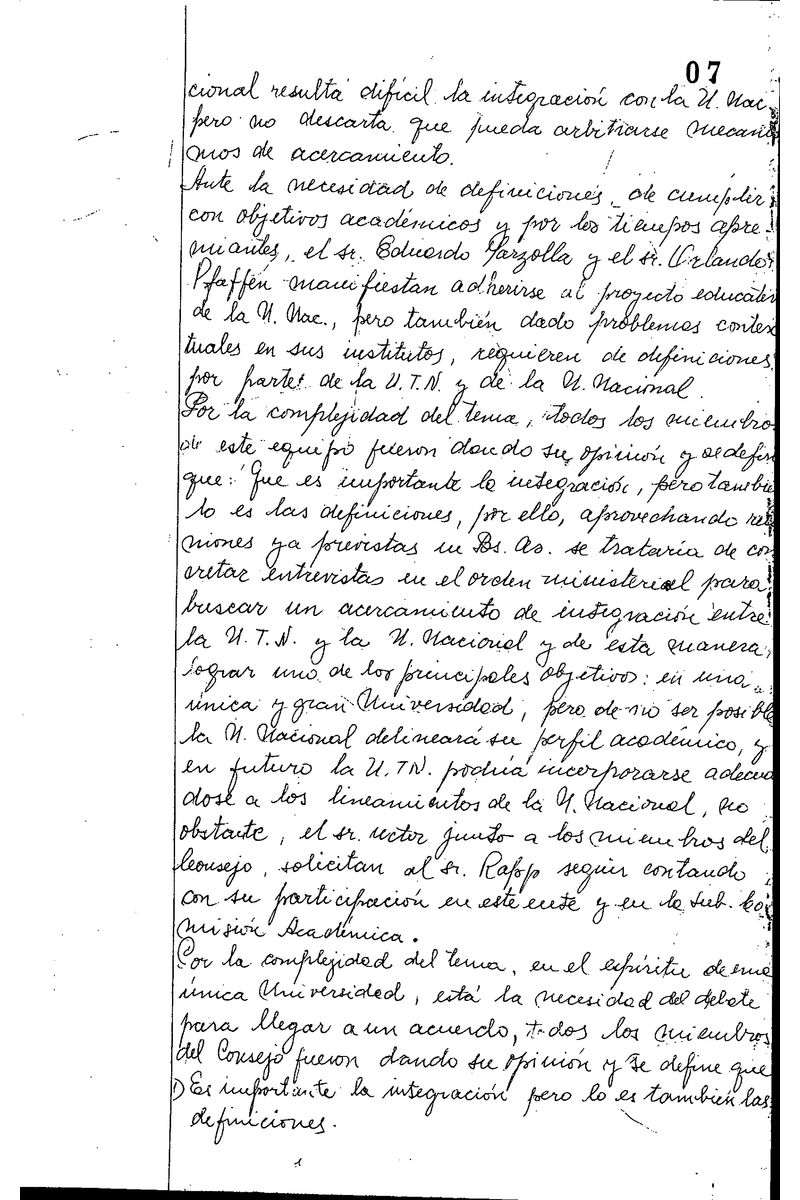 07
cional resulta difícil la integración con la U. Nac.
pero no descarta que pueda arbitrarse mecanis
mos de acercamiento.
Ante la necesidad de definiciones, de cumplir
con objetivos académicos y por los tiempos apre-
miantes, el sr. Eduardo Garzolla y el sr. Orlando
Pfaffén manifiestan adherirse al proyecto educativ
de la U. Nac., pero también dado problemas contex
tuales en sus institutos, requieren de definiciones
por parte de la U.T.N. y de la U. Nacional.
Por la complejidad del tema, todos los miembro
de este equipo fueron dando su opinión y se defin
que: Que es importante la integración, pero tambié
lo es las definiciones, por ello, aprovechando reu
niones ya previstas en Bs. As. se trataría de con
cretar entrevistas en el orden ministerial para
buscar un acercamiento de integración entre
la U.T.N. y la U. Nacional y de esta manera,
lograr uno de los principales objetivos: en una
única y gran Universidad, pero de no ser posible
la U. Nacional delineará su perfil académico, y
en futuro la U.TN. podría incorporarse adecua
dose a los lineamientos de la U. Nacional, no
obstante, el sr. rector junto a los miembros del
Consejo, solicitan al sr. Rapp seguir contando
con su participación en este ente y en la sub. Co
misión Académica.
Por la complejidad del tema, en el espíritu de una
única Universidad, está la necesidad del debate
para llegar a un acuerdo, todos los miembros
del Consejo fueron dando su opinión y se define que
1) Es importante la integración pero lo es también las
definiciones.